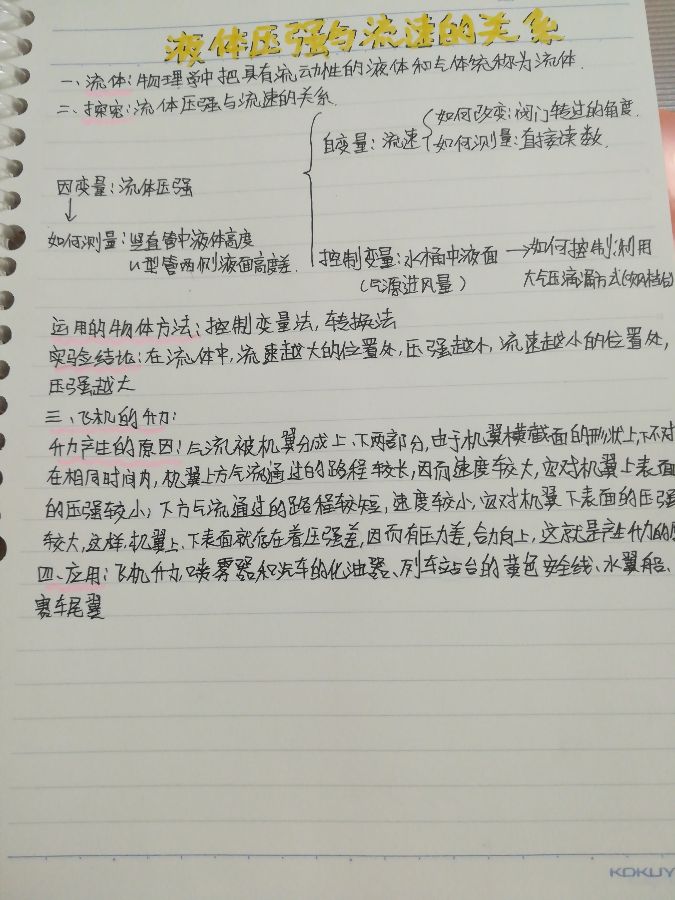 液体压强与流速的关系
一、流体:物理学中把具有流动性的液体和气体统称为流体.
二、探究:流体压强与流速的关系.
如何改变:阀门转过的角度.
自变量:流速
如何测量:直接读数.
因变量:流体压强
如何测量:竖直管中液体高度
U型管两侧液面高度差.
控制变量:水桶中液面
(气源进风量)
→如何控制:利用
大气压滴漏方式(
运用的物体方法:控制变量法,转换法
实验结论:在流体中,流速越大的位置处,压强越小,流速越小的位置处,
压强越大
三、飞机的升力:
升力产生的原因:气流被机翼分成上、下两部分,由于机翼横截面的形状上,下不对
在相同时间内,机翼上方气流通过的路程较长,因而速度较大,它对机翼上表面
的压强较小;下方气流通过的路程较短,速度较小,它对机翼下表面的压强
较大,这样,机翼上、下表面就存在着压强差,因而有压力差,合力向上,这就是产生升力的
四、应用:飞机升力,喷雾器和汽车的化油器、列车站台的黄色安全线、水翼船、
赛车尾翼
KOKUY